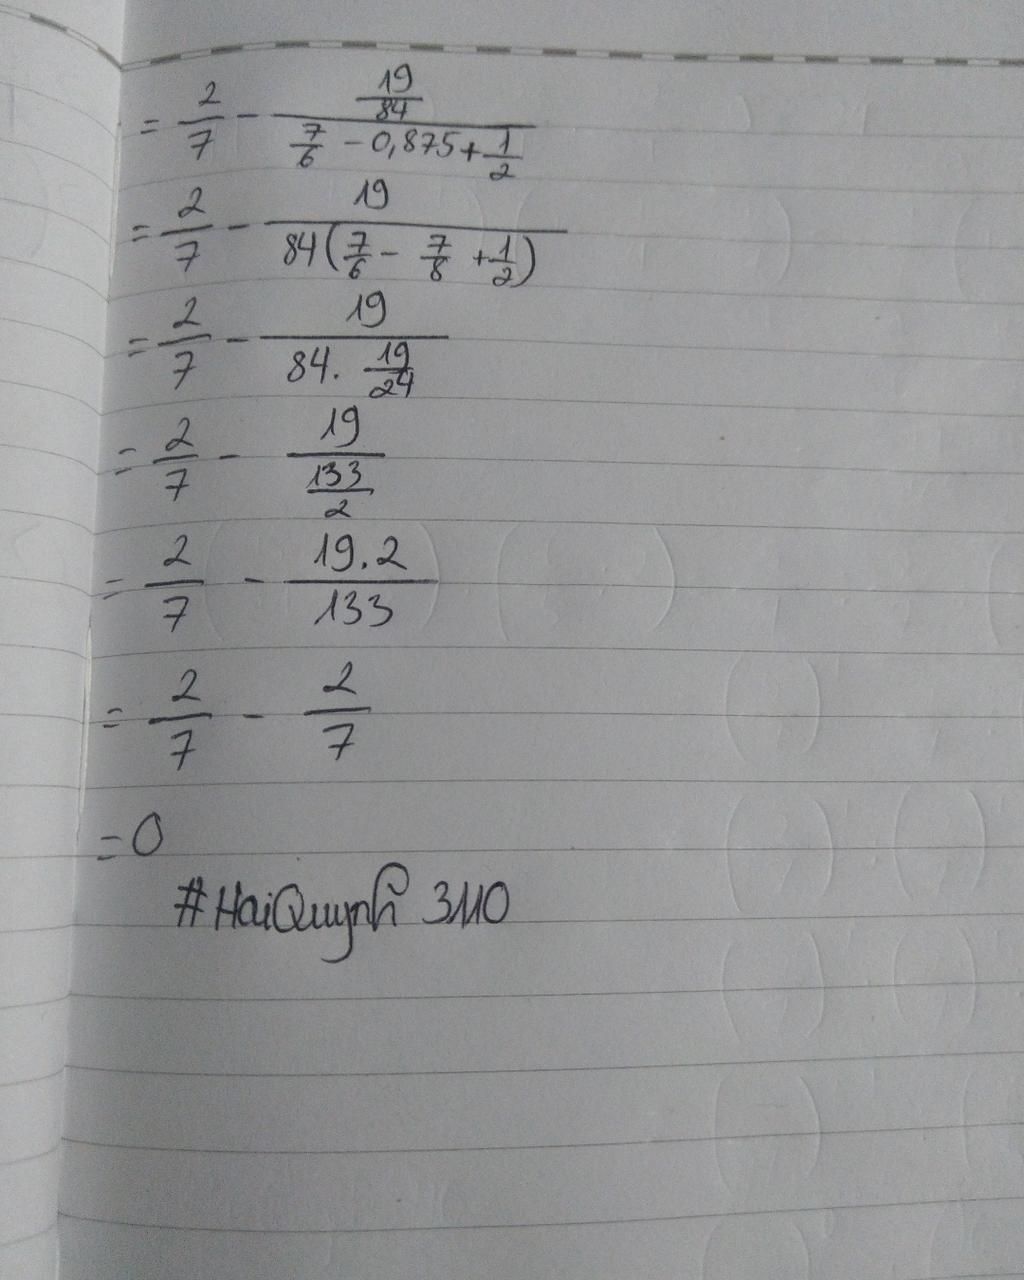 = 2/7 - (19/84)/(7/6 - 0,875 + 1/2)
= 2/7 - 19/(84(7/6 - 7/8 + 1/2))
= 2/7 - 19/(84. 19/24)
= 2/7 - 19/(133/2)
= 2/7 - (19.2)/133
= 2/7 - 2/7
= 0
#HaiQuynh 3110